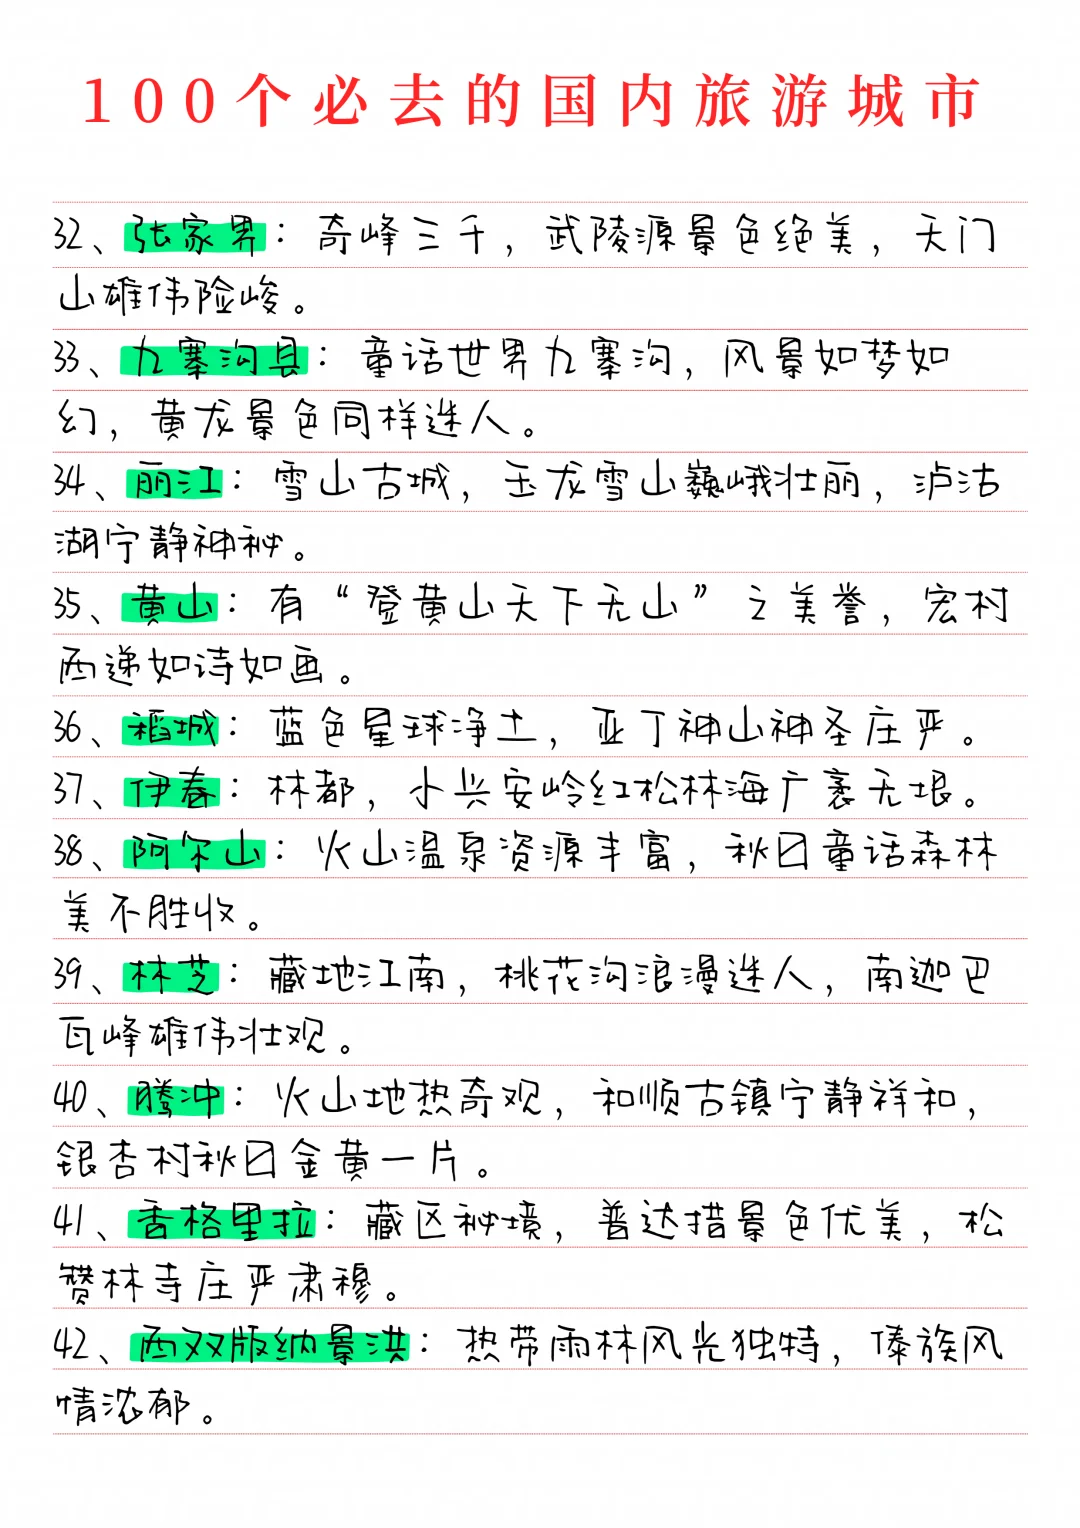 100个必去的国内旅游城市
32、张家界：奇峰三千，武陵源景色绝美，天门
山雄伟险峻。
33、九寨沟县：童话世界九寨沟，风景如梦如
幻，黄龙景色同样迷人。
34、丽江：雪山古城，玉龙雪山巍峨壮丽，泸沽
湖宁静神秘。
35、黄山：有“登黄山天下无山”之美誉，宏村
西递如诗如画。
36、稻城：蓝色星球净土，亚丁神山神圣庄严。
37、伊春：林都，小兴安岭红松林海广袤无垠。
38、阿尔山：火山温泉资源丰富，秋日童话森林
美不胜收。
39、林芝：藏地江南，桃花沟浪漫迷人，南迦巴
瓦峰雄伟壮观。
40、腾冲：火山地热奇观，和顺古镇宁静祥和，
银杏村秋日金黄一片。
41、香格里拉：藏区秘境，普达措景色优美，松
赞林寺庄严肃穆。
42、西双版纳景洪：热带雨林风光独特，傣族风
情浓郁。